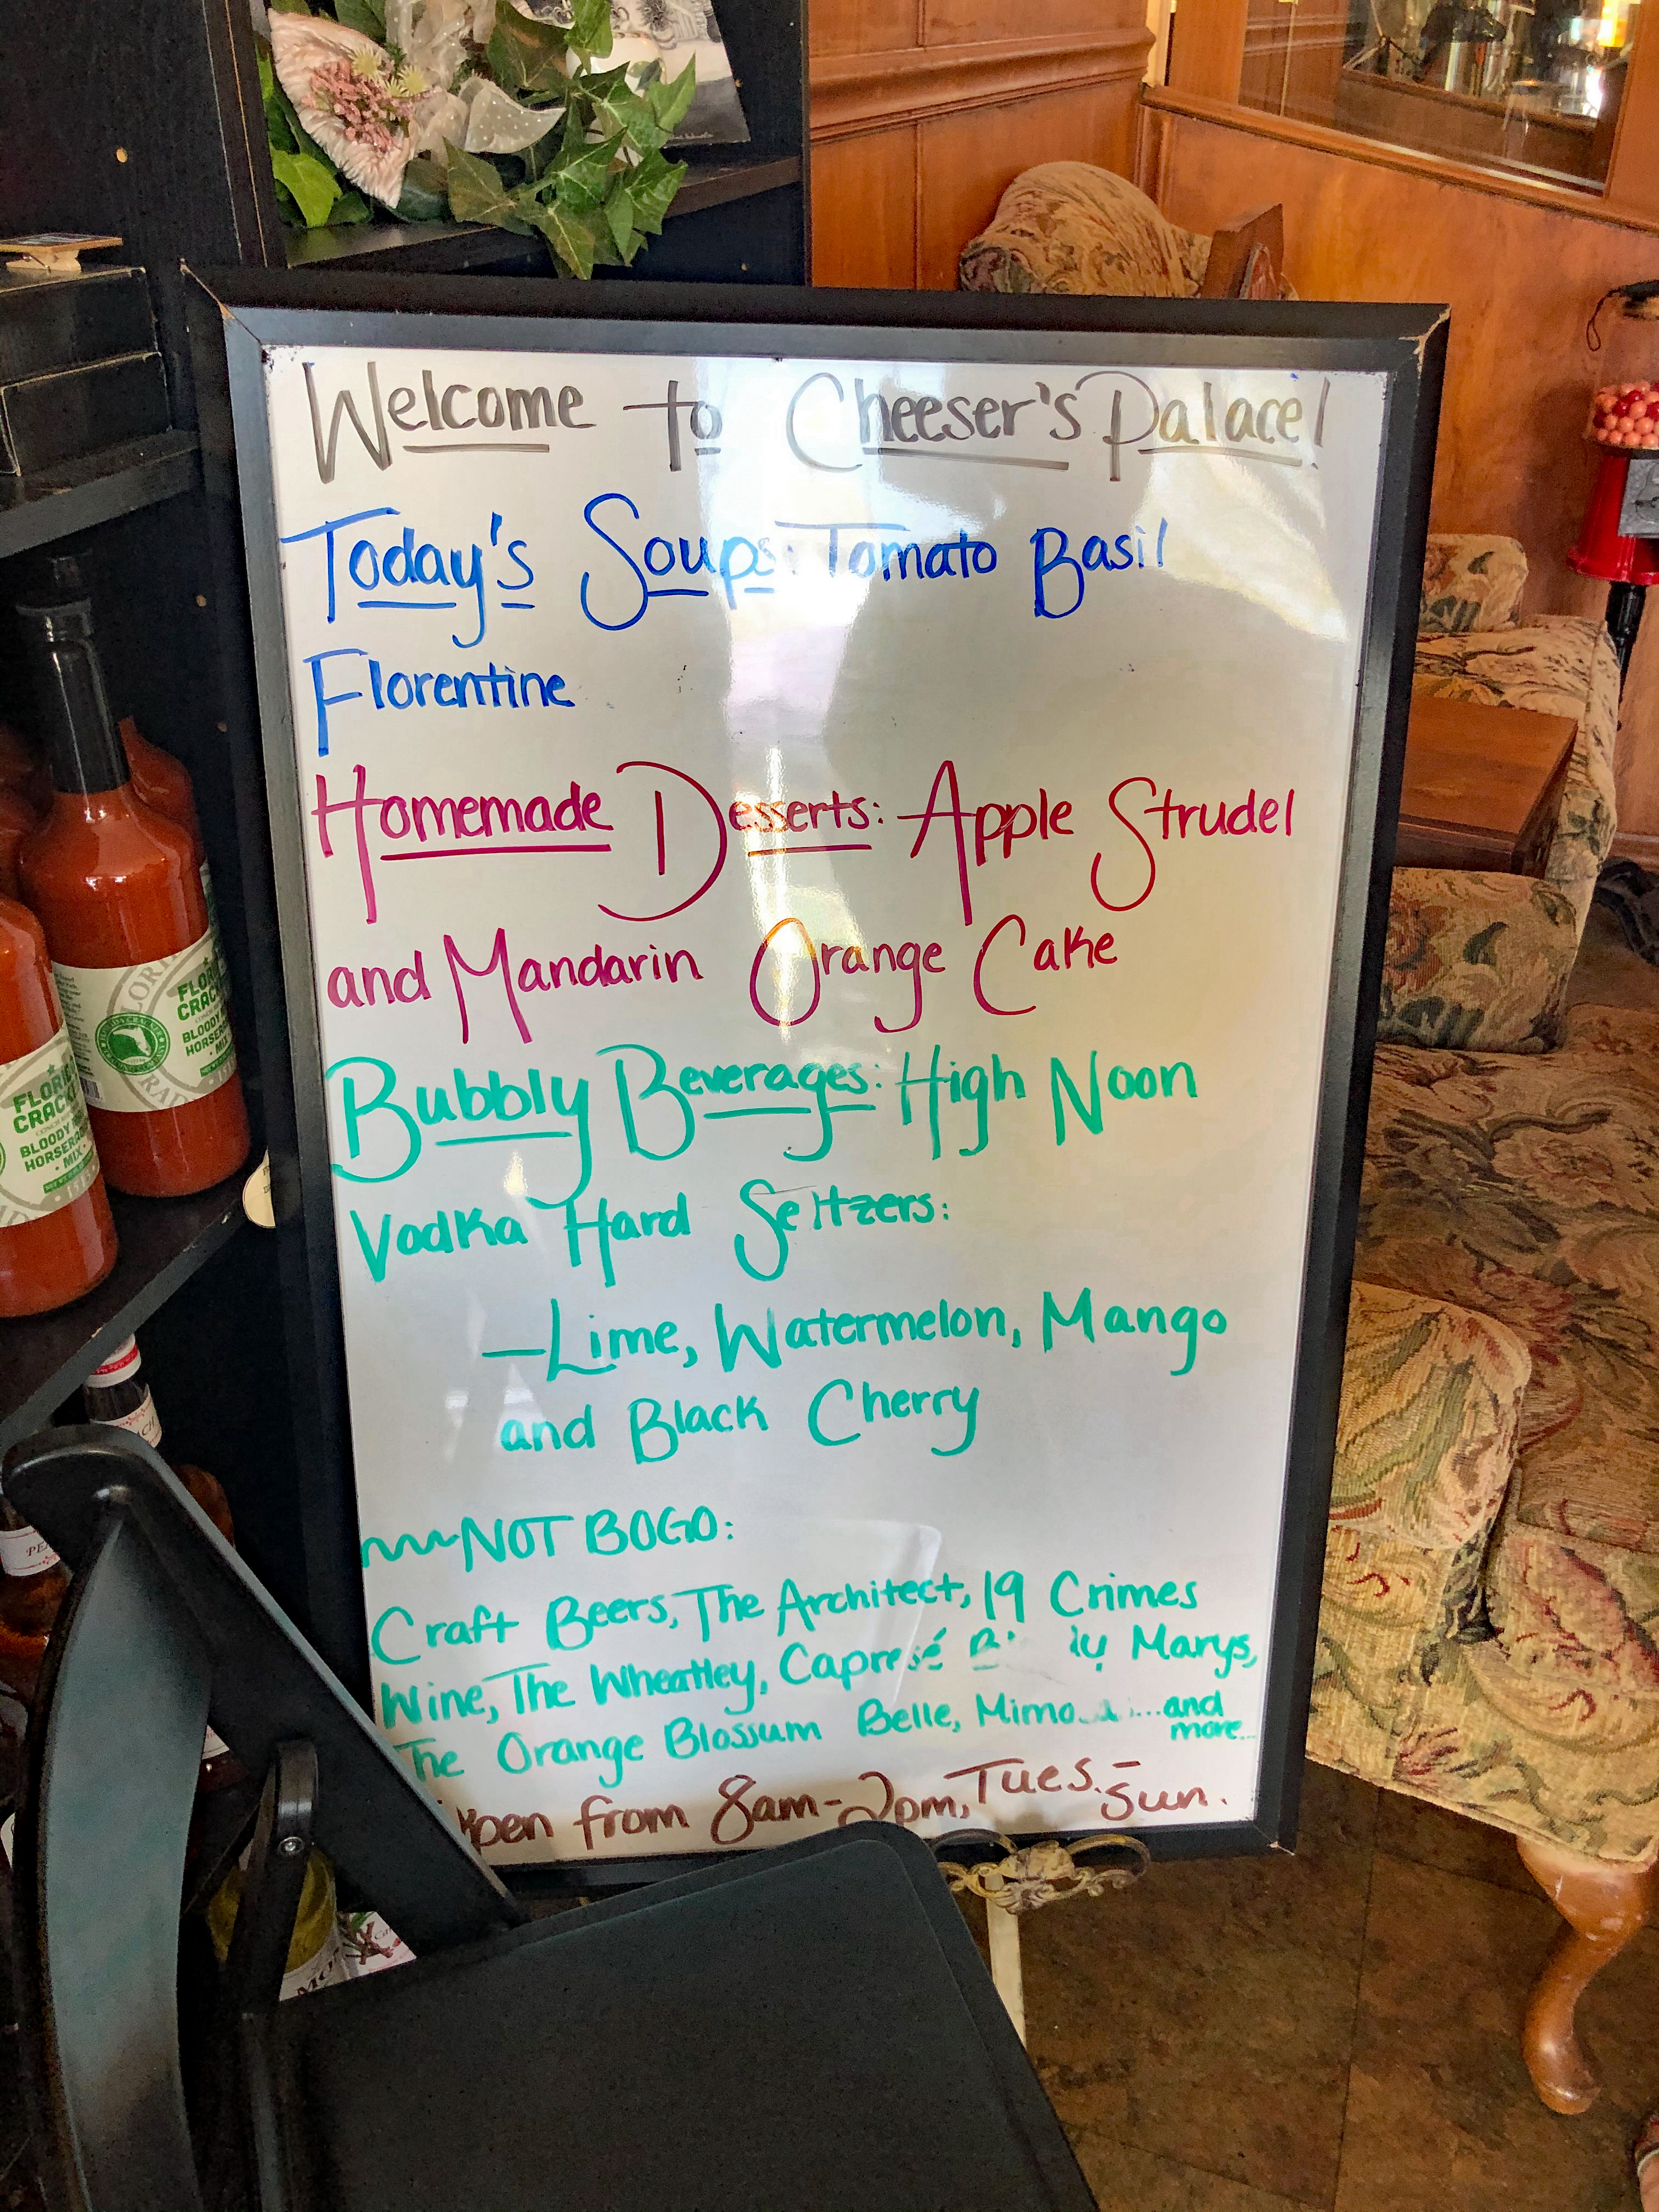 Welcome to Cheeser's Palace!
Today's Soups: Tomato Basil
Florentine
Homemade Desserts: Apple Strudel
and Mandarin Orange Cake
Bubbly Beverages: High Noon
Vodka Hard Seltzers:
—Lime, Watermelon, Mango
and Black Cherry
~~~NOT BOGO:
Craft Beers, The Architect, 19 Crimes
Wine, The Wheatley, Capresé Marys,
The Orange Blossum Belle, ...and
more...
from 8am-2pm, Tues.-
Sun.
BLOODY
MIX
BLOODY
MIX